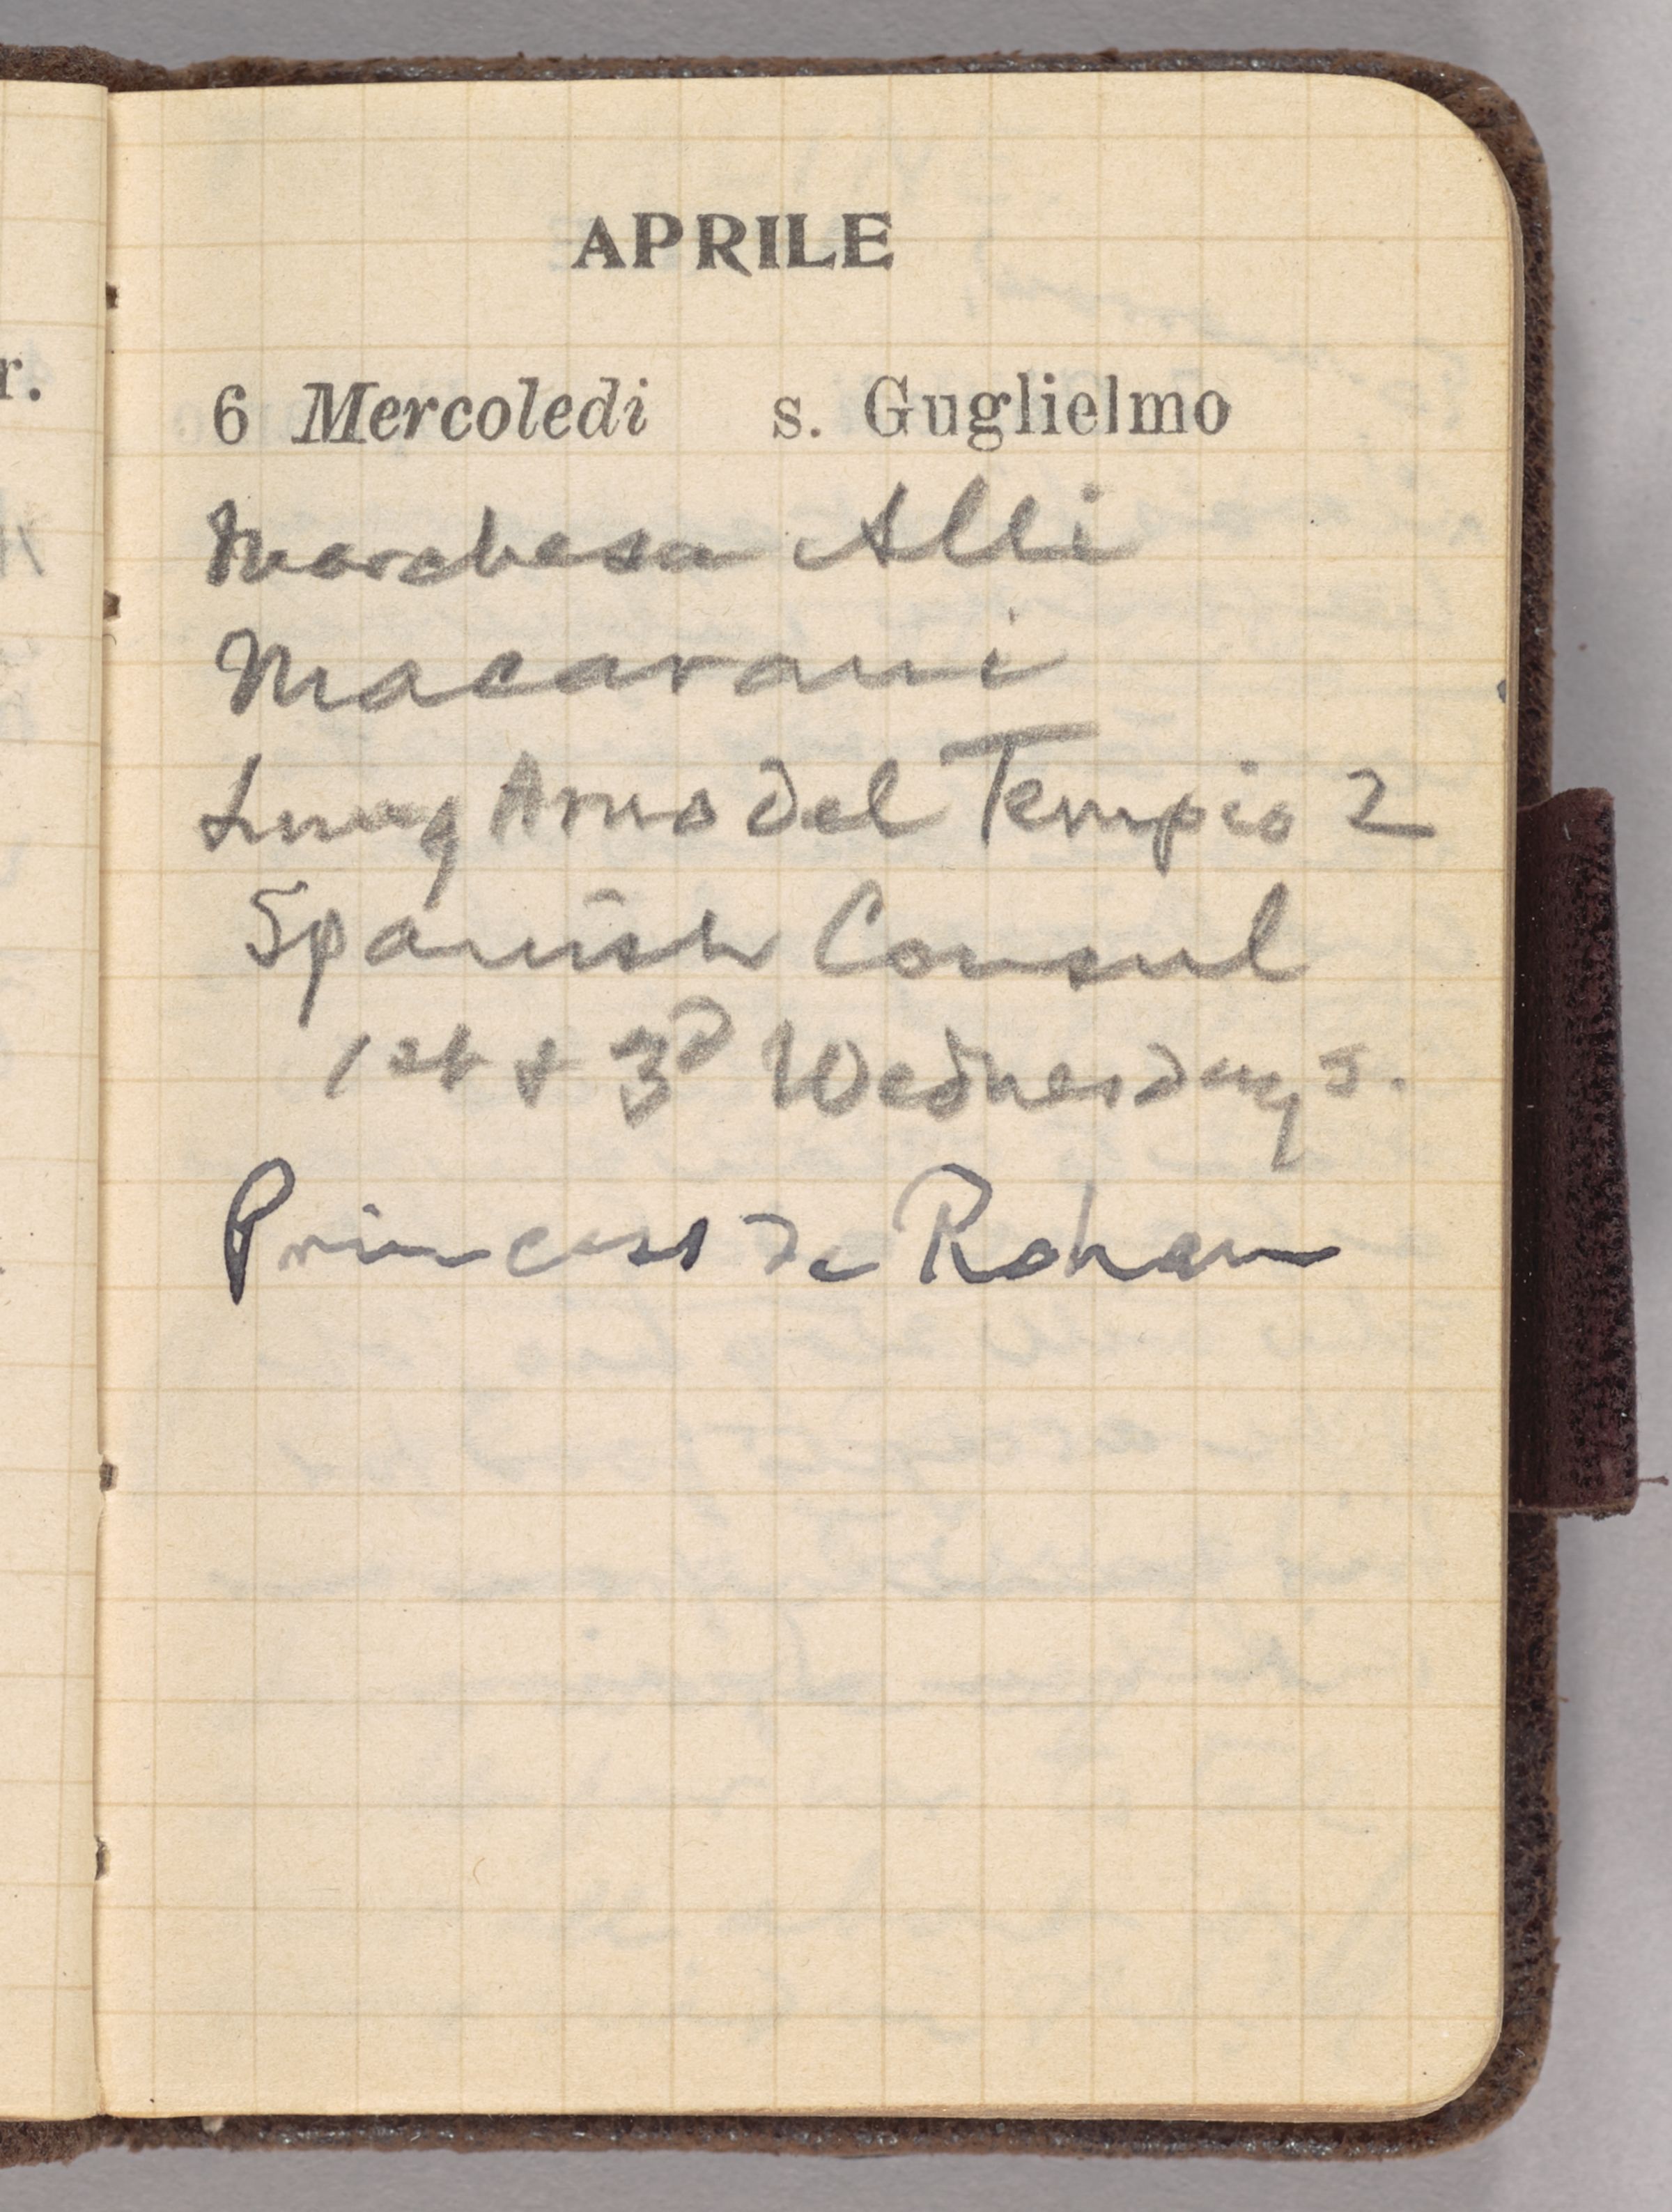 APRILE
6 Mercoledi s. Guglielmo
Marchesa Alli
Macarani
Lung Arno del Tempio 2
Spanish Consul
1st + 3d Wednesdays.
Princess de Rohan